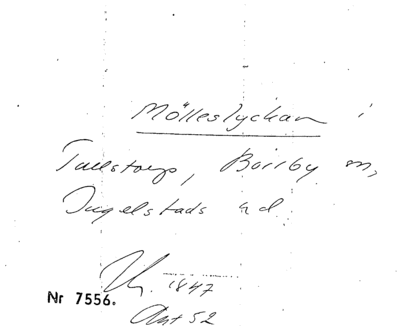 Mölleslyckan i
Tullstorp, Borrby m,
Ingelstads hd
1847
Nr 7556.
Akt 52